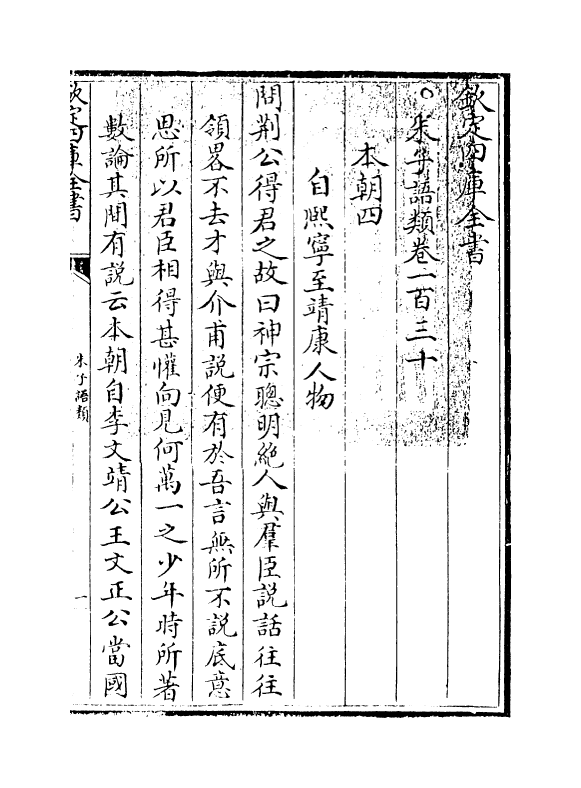 欽定四庫全書
朱子語類卷一百三十
本朝四
自熙寧至靖康人物
問荆公得君之故曰神宗聰明絶人與羣臣説話往往
領畧不去才與介甫説便有於吾言無所不説底意
思所以君臣相得甚懽向見何萬一之少年時所著
數論其間有説云本朝自李文靖公王文正公當國
欽定四庫全書
朱子語類
一